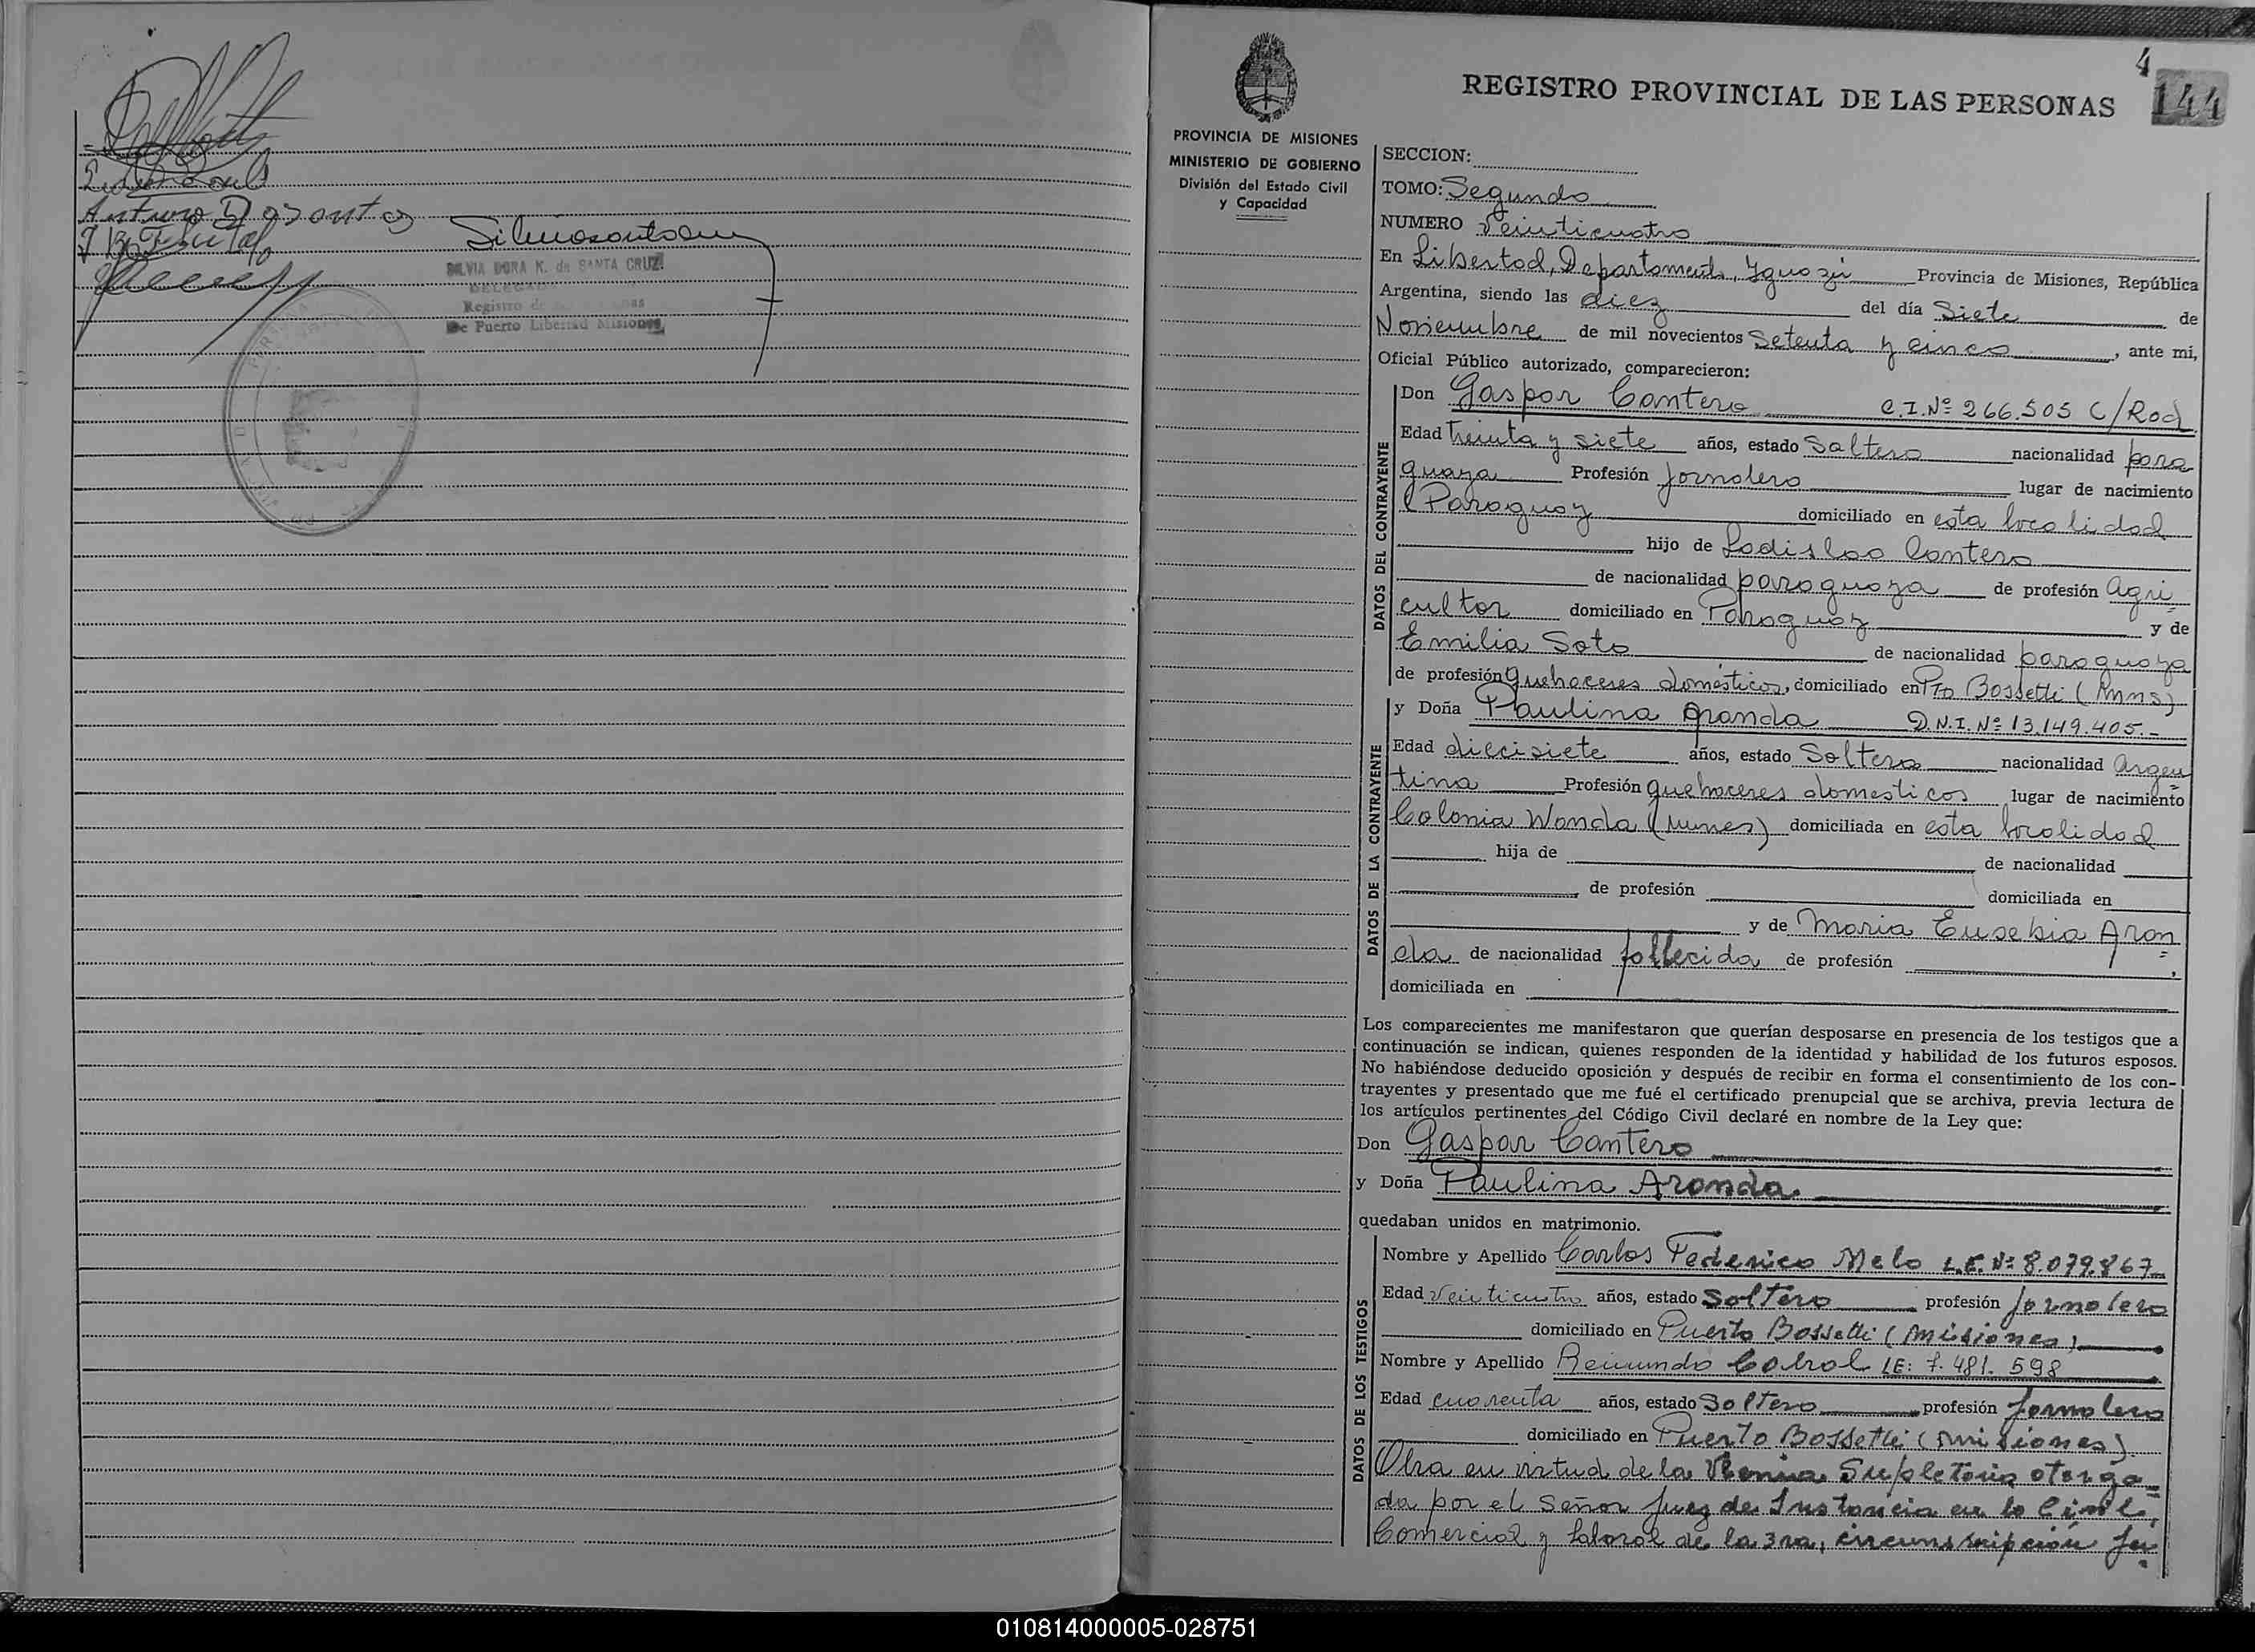 Arturo Dasantos
SILVIA DORA K. de SANTA CRUZ
DELEGADA
Registro de
De Puerto Libertad Misiones
4
144
REGISTRO PROVINCIAL DE LAS PERSONAS
PROVINCIA DE MISIONES
MINISTERIO DE GOBIERNO
División del Estado Civil
y Capacidad
SECCION:
TOMO: Segundo
NUMERO Veinticuatro
En Libertad, Departamento, Yguazú Provincia de Misiones, República
Argentina, siendo las diez del día Siete de
Noviembre de mil novecientos Setenta y cinco, ante mi,
Oficial Público autorizado, comparecieron:
DATOS DEL CONTRAYENTE
Don Gaspar Cantero C.I.Nº 266.505 C/Rod
Edad treinta y siete años, estado Soltero nacionalidad para
guaya Profesión Jornalero lugar de nacimiento
Paraguay domiciliado en esta localidad
hijo de Ladislao Cantero
de nacionalidad paraguaya de profesión Agri
cultor domiciliado en Paraguay y de
Emilia Soto de nacionalidad paraguaya
de profesión Quehaceres domésticos, domiciliado en Pto Bossetti (Mnes)
DATOS DE LA CONTRAYENTE
y Doña Paulina Aranda D.N.I. Nº 13.149.405.-
Edad diecisiete años, estado Soltera nacionalidad Argen
tina Profesión quehaceres domesticos lugar de nacimiento
Colonia Wanda (Mnes) domiciliada en esta localidad
hija de de nacionalidad
de profesión domiciliada en
y de Maria Eusebia Aran
da de nacionalidad fallecida de profesión
domiciliada en
Los comparecientes me manifestaron que querían desposarse en presencia de los testigos que a
continuación se indican, quienes responden de la identidad y habilidad de los futuros esposos.
No habiéndose deducido oposición y después de recibir en forma el consentimiento de los con-
trayentes y presentado que me fué el certificado prenupcial que se archiva, previa lectura de
los artículos pertinentes del Código Civil declaré en nombre de la Ley que:
Don Gaspar Cantero
y Doña Paulina Aranda.
quedaban unidos en matrimonio.
DATOS DE LOS TESTIGOS
Nombre y Apellido Carlos Federico Melo L.E. Nº 8.079.867
Edad Veinticuatro años, estado Soltero profesión Jornalero
domiciliado en Puerto Bossetti (Misiones)
Nombre y Apellido Reimundo Cabral LE: 7.481.598
Edad cuarenta años, estado Soltero profesión Jornalero
domiciliado en Puerto Bossetti (Misiones)
Obra en virtud de la Venia Supletoria otorga
da por el Señor Juez de Instancia en lo Civil,
Comercial y Laboral de la 3ra, circunscripción Ju
010814000005-028751